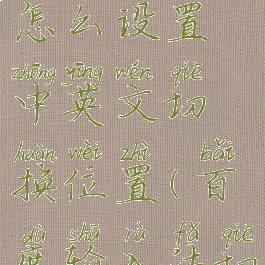 怎么设置
zhōng yīng wén qiē
中英文切
huàn wèi zhì bǎi
换位置(百
dù shū rù fǎ qiē
度输入法切